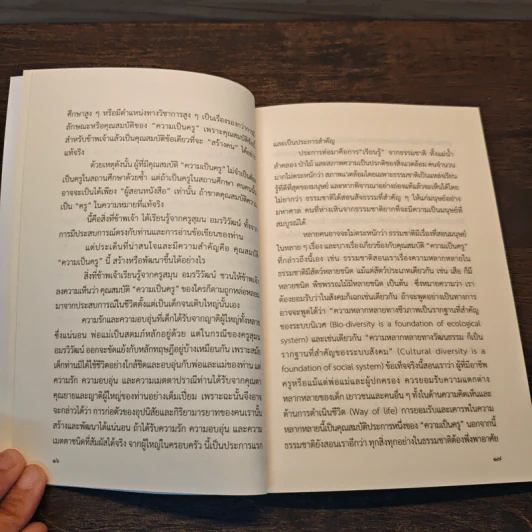 ศึกษาสูง ๆ หรือมีตำแหน่งทางวิชาการสูง ๆ เป็นเรื่องรองกว่าการ
ลักษณะหรือคุณสมบัติของ “ความเป็นครู” เพราะคุณสมบัติ
สำหรับข้าพเจ้าแล้วเป็นคุณสมบัติข้อเดียวที่จะ “สร้างคน” ได้อย่าง
แท้จริง
ด้วยเหตุดังนั้น ผู้ที่มีคุณสมบัติ “ความเป็นครู” ไม่จำเป็นต้อง
เป็นครูในสถานศึกษาด้วยซ้ำ แต่ถ้าเป็นครูในสถานศึกษา คนคนนั้น
อาจจะเป็นได้เพียง “ผู้สอนหนังสือ” เท่านั้น ถ้าขาดคุณสมบัติความ
เป็น “ครู” ในความหมายที่แท้จริง
นี้คือสิ่งที่ข้าพเจ้า ได้เรียนรู้จากครูสุมน อมรวิวัฒน์ ทั้งจาก
การมีประสบการณ์ตรงกับท่านและการอ่านข้อเขียนของท่าน
แต่ประเด็นที่น่าสนใจและมีความสำคัญคือ คุณสมบัติ
“ความเป็นครู” นี้ สร้างหรือพัฒนาขึ้นได้อย่างไร
สิ่งที่ข้าพเจ้าเรียนรู้จากครูสุมน อมรวิวัฒน์ ชวนให้ข้าพเจ้า
ลงความเห็นว่า คุณสมบัติ “ความเป็นครู” ของใครก็ตามถูกหล่อหลอม
มาจากประสบการณ์ในชีวิตตั้งแต่เป็นเด็กจนเติบใหญ่นั้นเอง
ความรักและความอบอุ่นที่เด็กได้รับจากญาติผู้ใหญ่ทั้งหลาย
ซึ่งแน่นอน พ่อแม่เป็นสดมภ์หลักอยู่ด้วย แต่ในกรณีของครูสุมน
อมรวิวัฒน์ ออกจะขัดแย้งกับหลักทฤษฎีอยู่บ้างเหมือนกัน เพราะสมัย
เด็กท่านมิได้ใช้ชีวิตอย่างใกล้ชิดและอบอุ่นกับพ่อและแม่ของท่าน แต่
ความรัก ความอบอุ่น และความเมตตาปรานีท่านได้รับจากคุณตา
คุณยายและญาติผู้ใหญ่ของท่านอย่างเต็มเปี่ยม เพราะฉะนั้นจึงอาจ
จะกล่าวได้ว่า การก่อตัวของอุปนิสัยและกิริยามารยาทของคนเรานั้น
สร้างและพัฒนาได้แน่นอน ถ้าได้รับความรัก ความอบอุ่น และความ
เมตตาชนิดที่สัมผัสได้จริง จากผู้ใหญ่ในครอบครัว นี้เป็นประการแรก
๑๖
และเป็นประการสำคัญ
ประการต่อมาคือการ “เรียนรู้” จากธรรมชาติ ทั้งแม่น้ำ
ลำคลอง ป่าไม้ และสภาพความเป็นปรกติของสิ่งแวดล้อม คนจำนวน
มากไม่ตระหนักว่า สภาพแวดล้อมโดยเฉพาะธรรมชาติเป็นแหล่งเรียน
รู้ที่ดีที่สุดของมนุษย์ และหากพิจารณาอย่างถ่องแท้แล้วจะเห็นได้โดย
ไม่ยากว่า ธรรมชาติได้สอนสัจธรรมที่สำคัญ ๆ ให้แก่มนุษย์อย่าง
มหาศาล คนที่ห่างเหินจากธรรมชาติยากที่จะมีความเป็นมนุษย์ที่
สมบูรณ์ได้
หลายคนอาจจะไม่ตระหนักว่า ธรรมชาติมีเรื่องที่สอนมนุษย์
ในหลาย ๆ เรื่อง และบางเรื่องเกี่ยวข้องกับคุณสมบัติ “ความเป็นครู”
ที่กล่าวถึงนี้เอง เช่น ธรรมชาติสอนเราเรื่องความหลากหลายใน
ธรรมชาติมีสัตว์หลายชนิด แม้แต่สัตว์ประเภทเดียวกัน เช่น เสือ ก็มี
หลายชนิด พืชพรรณไม้มีหลายชนิด เป็นต้น - ซึ่งหมายความว่า เรา
ต้องยอมรับว่าในสังคมก็เฉกเช่นเดียวกัน ถ้าจะพูดอย่างเป็นทางการ
อาจจะพูดได้ว่า “ความหลากหลายทางชีวภาพเป็นรากฐานที่สำคัญ
ของระบบนิเวศ” (Bio-diversity is a foundation of ecological
system) และเช่นเดียวกัน “ความหลากหลายทางวัฒนธรรม ก็เป็น
รากฐานที่สำคัญของระบบสังคม” (Cultural diversity is a
foundation of social system) ข้อเท็จจริงนี้สอนเราว่า ผู้ที่มีอาชีพ
ครูหรือแม้แต่พ่อแม่และผู้ปกครอง ควรยอมรับความแตกต่าง
หลากหลายของเด็ก เยาวชนและคนอื่น ๆ ทั้งในด้านความคิดเห็นและ
ด้านการดำเนินชีวิต (Way of life) การยอมรับและเคารพในความ
หลากหลายนี้เป็นคุณสมบัติประการหนึ่งของ “ความเป็นครู” นอกจากนี้
ธรรมชาติยังสอนเราอีกว่า ทุกสิ่งทุกอย่างในธรรมชาติต้องพึ่งพาอาศัย
๑๗